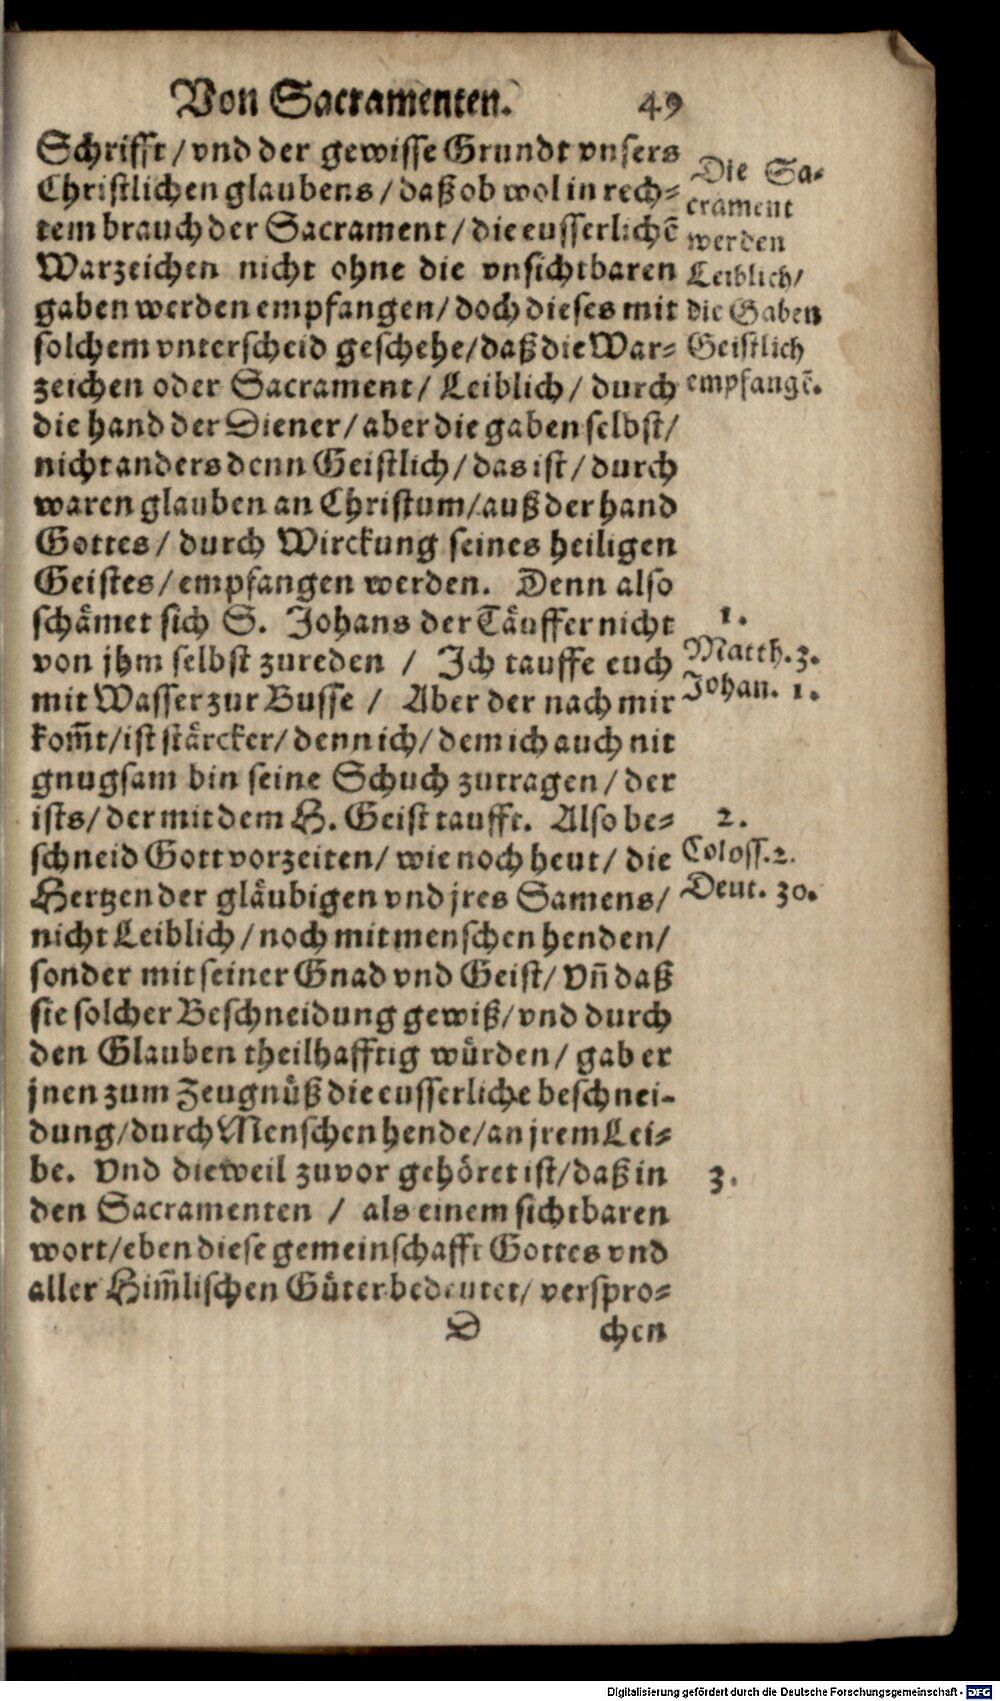 Von Sacramenten. 49
Schrifft / vnd der gewisse Grundt vnsers
Christlichen glaubens / daß ob wol in rech⸗
tem brauch der Sacrament / die eusserlichẽ
Warzeichen nicht ohne die vnsichtbaren
gaben werden empfangen / doch dieses mit
solchem vnterscheid geschehe / daß die War⸗
zeichen oder Sacrament / Leiblich / durch
die hand der Diener / aber die gaben selbst /
nicht anders denn Geistlich / das ist / durch
waren glauben an Christum / auß der hand
Gottes / durch Wirckung seines heiligen
Geistes / empfangen werden. Denn also
schämet sich S. Johans der Täuffer nicht
von jhm selbst zureden / Ich tauffe euch
mit Wasser zur Busse / Aber der nach mir
kom̃t / ist stärcker / denn ich / dem ich auch nit
gnugsam bin seine Schuch zutragen / der
ists / der mit dem H. Geist taufft. Also be⸗
schneid Gott vorzeiten / wie noch heut / die
Hertzen der gläubigen vnd jres Samens /
nicht Leiblich / noch mit menschen henden /
sonder mit seiner Gnad vnd Geist / Vñ daß
sie solcher Beschneidung gewiß / vnd durch
den Glauben theilhafftig würden / gab er
jnen zum Zeugnüß die eusserliche beschnei-
dung / durch Menschen hende / an jrem Lei⸗
be. Vnd dieweil zuvor gehöret ist / daß in
den Sacramenten / als einem sichtbaren
wort / eben diese gemeinschafft Gottes vnd
aller Him̃lischen Güter bedeutet / verspro⸗
D chen
Die Sa⸗
crament
werden
Leiblich /
die Gaben
Geistlich
empfangẽ.
1.
Matth. 3.
Johan. 1.
2.
Coloss. 2.
Deut. 30.
3.
Digitalisierung gefördert durch die Deutsche Forschungsgemeinschaft - DFG